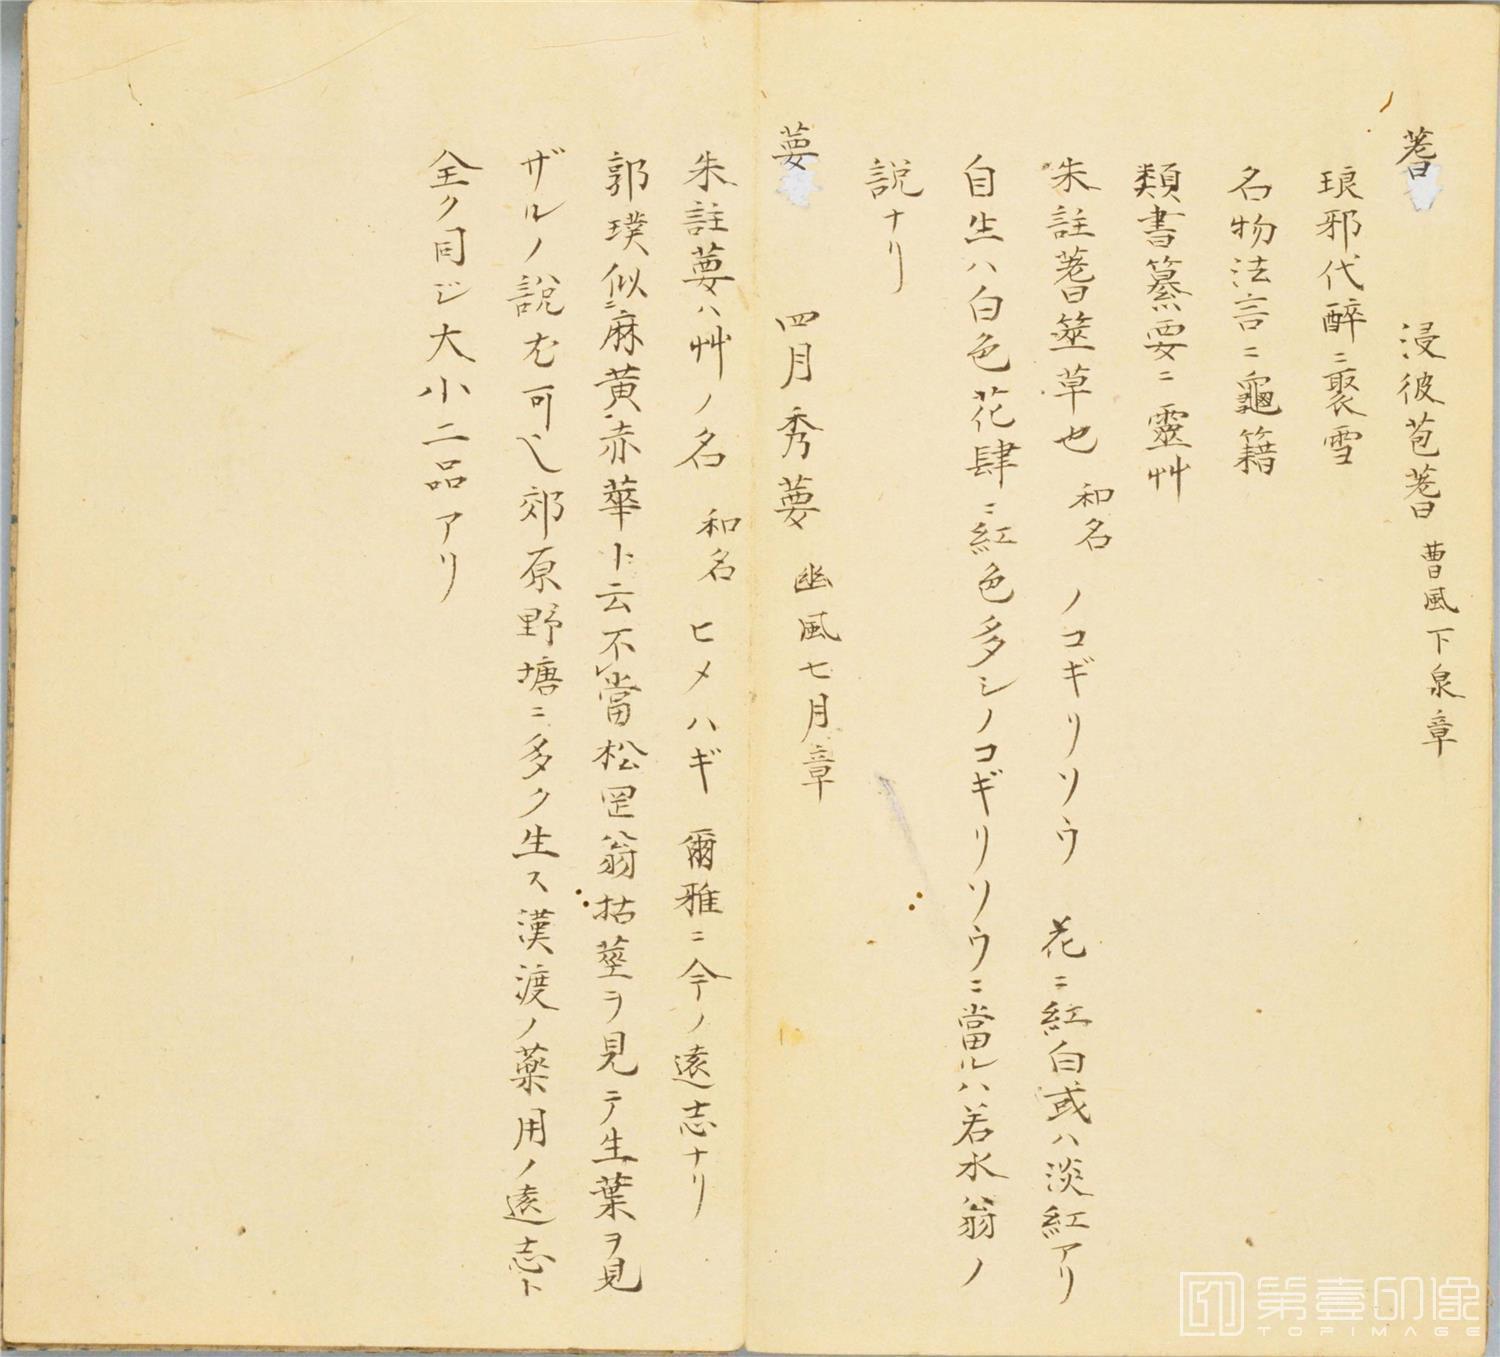 蓍　浸彼苞蓍　曹風下泉章
琅邪代醉ニ聚雪
名物法言ニ龜籍
類書纂要ニ靈艸
朱註蓍筮草也　和名　ノコギリソウ　花ニ紅白或ハ淡紅アリ
自生ハ白色花肆ニ紅色多シノコギリソウニ當ルハ若水翁ノ
說ナリ
葽　四月秀葽　幽風七月章
朱註葽ハ艸ノ名　和名　ヒメハギ　爾雅ニ今ノ遠志ナリ
郭璞似ニ麻黄赤華ト云不レ當松罡翁枯莖ヲ見テ生葉ヲ見
ザルノ說尤可ベ郊原野塘ニ多ク生ス漢渡ノ藥用ノ遠志ト
全ク同ジ大小二品アリ
第壹印像
TOPIMAGE